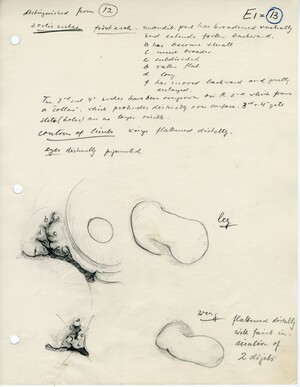 distinguished from 12
E1 = 13
aortic arches. first arch. mandib. part has broadened ventrally
and extends farther backward.
b has become small
c much broader
e subdivided
d long
f has moved backward and greatly
enlarged.
The 3rd and 4th arches has been overgrown by the 2nd which forms
a collar, which protrudes distinctly over surface. 3rd + 4th gill
slits (holes) are no longer visible.
contour of limbs wings flattened distally.
eyes distinctly pigmented
leg
wing
flattened distally
with faint in-
dication of
2 digits